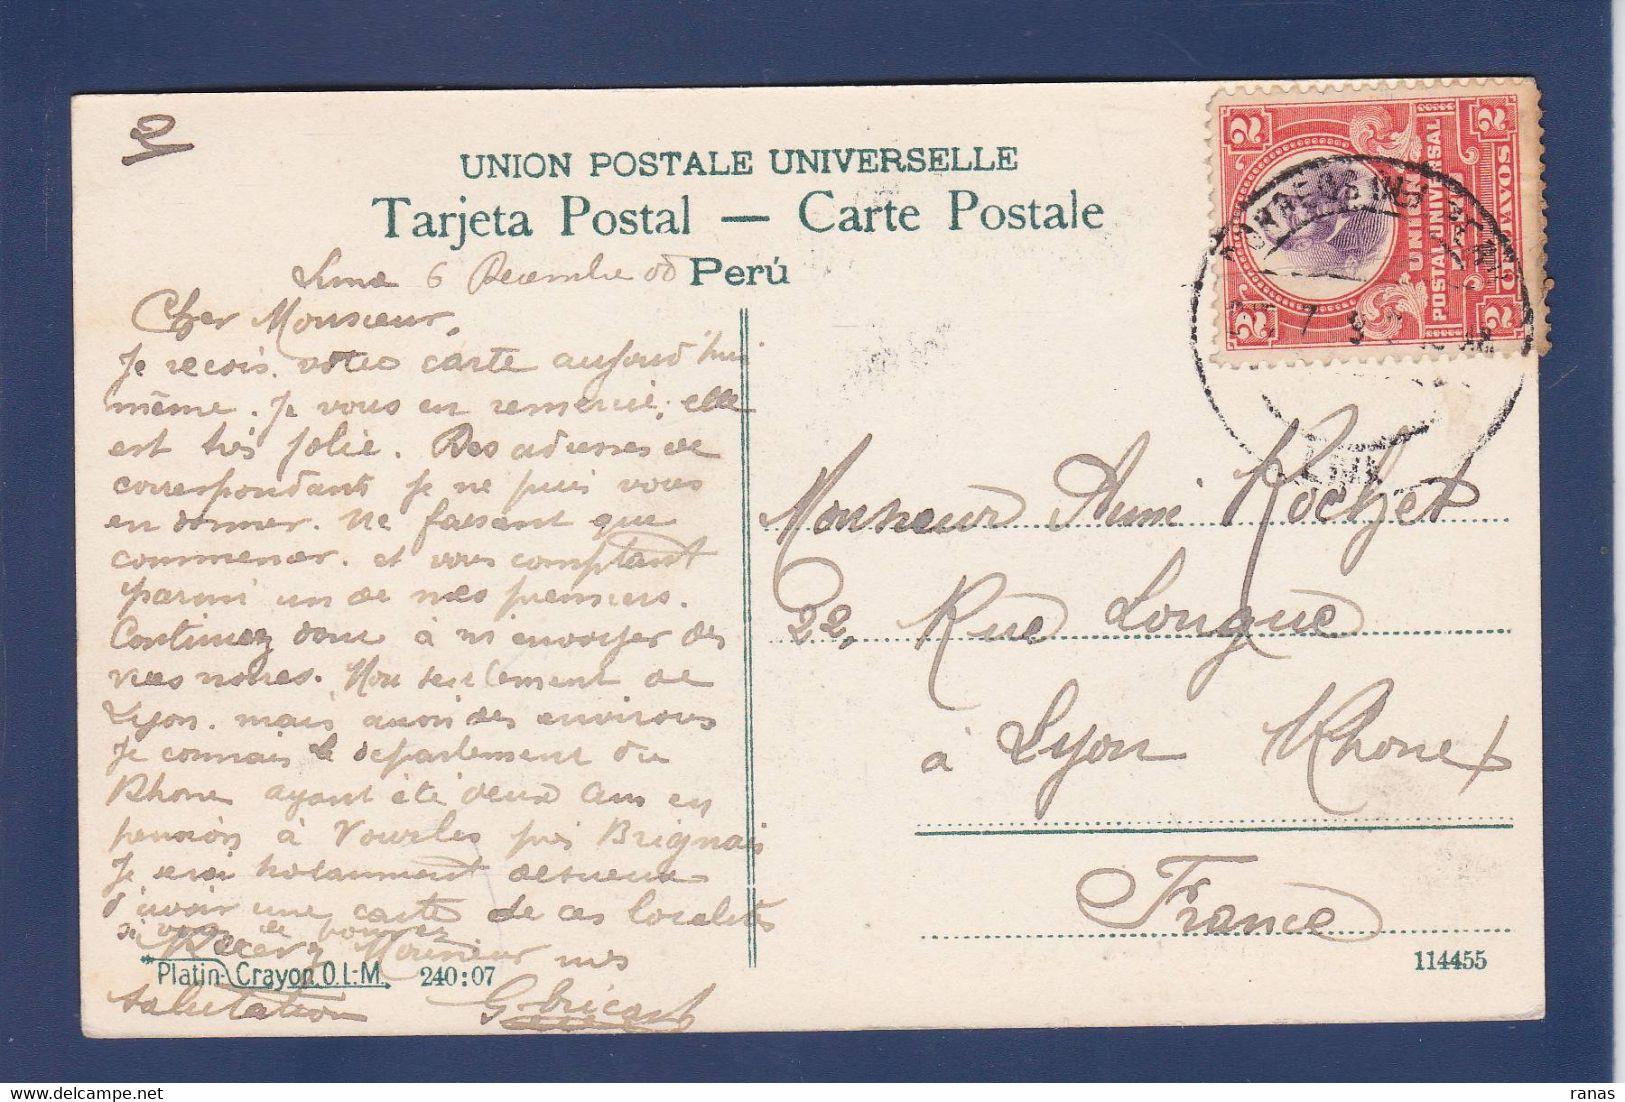 UNION POSTALE UNIVERSELLE
Tarjeta Postal — Carte Postale
Perú
Lima 6 Decembre
Cher Monsieur,
Je recois votre carte aujourd'hui
même. Je vous en remercie, elle
est très jolie. Des adresses de
correspondants je ne puis vous
en donner. Ne faisant que
commencer. et vous comptant
parmi un de mes premiers.
Continuez donc à m'envoyer des
vues noires. Non seulement de
Lyon. mais aussi des environs
Je connais le departement du
Rhone ayant été deux ans en
pension à Vourles près Brignais
Je serai notamment desireux
d'avoir une carte de ces localités
si vous le pouvez
Recevez Monsieur mes
salutation
Platin-Crayon O.L-M. 240:07
2 2
UNION
POSTAL UNIVERSAL
2 CENTAVOS 2
LIMA
Monsieur Aimé Rochet
22, Rue Longue
à Lyon Rhone
France
114455
ranas